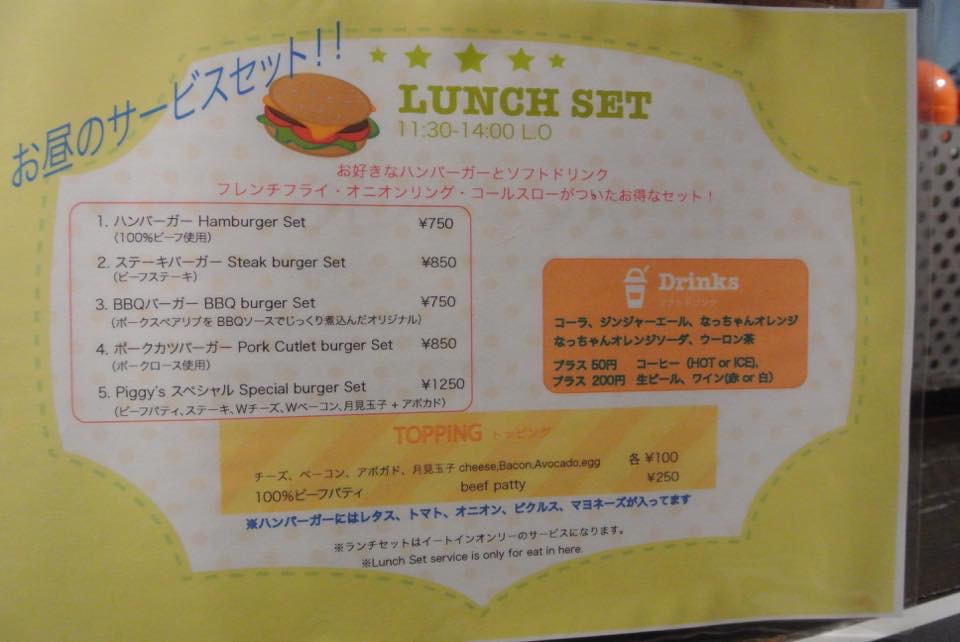 お昼のサービスセット!!
LUNCH SET
11:30-14:00 L.O
お好きなハンバーガーとソフトドリンク
フレンチフライ・オニオンリング・コールスローがついたお得なセット！
1. ハンバーガー Hamburger Set ¥750
（100%ビーフ使用）
2. ステーキバーガー Steak burger Set ¥850
（ビーフステーキ）
3. BBQバーガー BBQ burger Set ¥750
（ポークスペアリブを BBQソースでじっくり煮込んだオリジナル）
4. ポークカツバーガー Pork Cutlet burger Set ¥850
（ポークロース使用）
5. Piggy's スペシャル Special burger Set ¥1250
（ビーフパティ、ステーキ、Wチーズ、Wベーコン、月見玉子 + アボカド）
Drinks
ソフトドリンク
コーラ、ジンジャーエール、なっちゃんオレンジ
なっちゃんオレンジソーダ、ウーロン茶
プラス 50円 コーヒー（HOT or ICE)、
プラス 200円 生ビール、ワイン(赤 or 白)
TOPPING トッピング
チーズ、ベーコン、アボガド、月見玉子 cheese,Bacon,Avocado,egg 各 ¥100
100%ビーフパティ beef patty ¥250
※ハンバーガーにはレタス、トマト、オニオン、ピクルス、マヨネーズが入ってます
※ランチセットはイートインオンリーのサービスになります。
※Lunch Set service is only for eat in here.